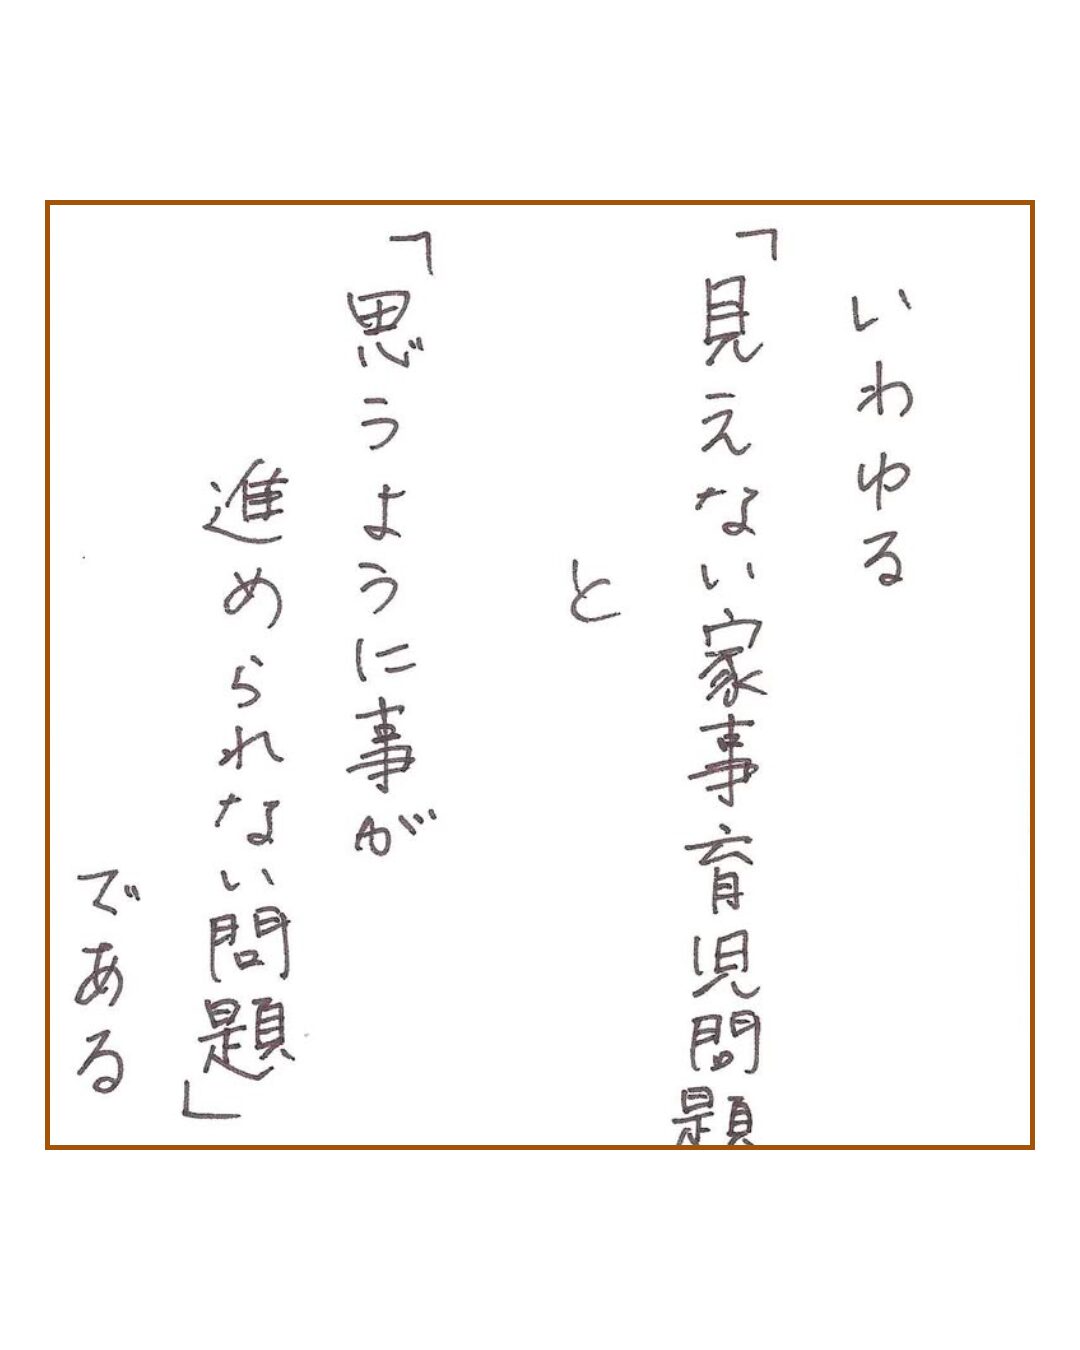 いわゆる
「見えない家事育児問題
と
「思うように事が
進められない問題」
である